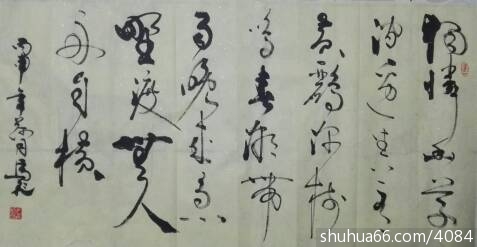 獨憐幽草
澗邊生上有
黄鸝深樹
鳴春潮帶
雨晚來急
野渡無人
舟自橫
丙申年
shuhua66.com/4084